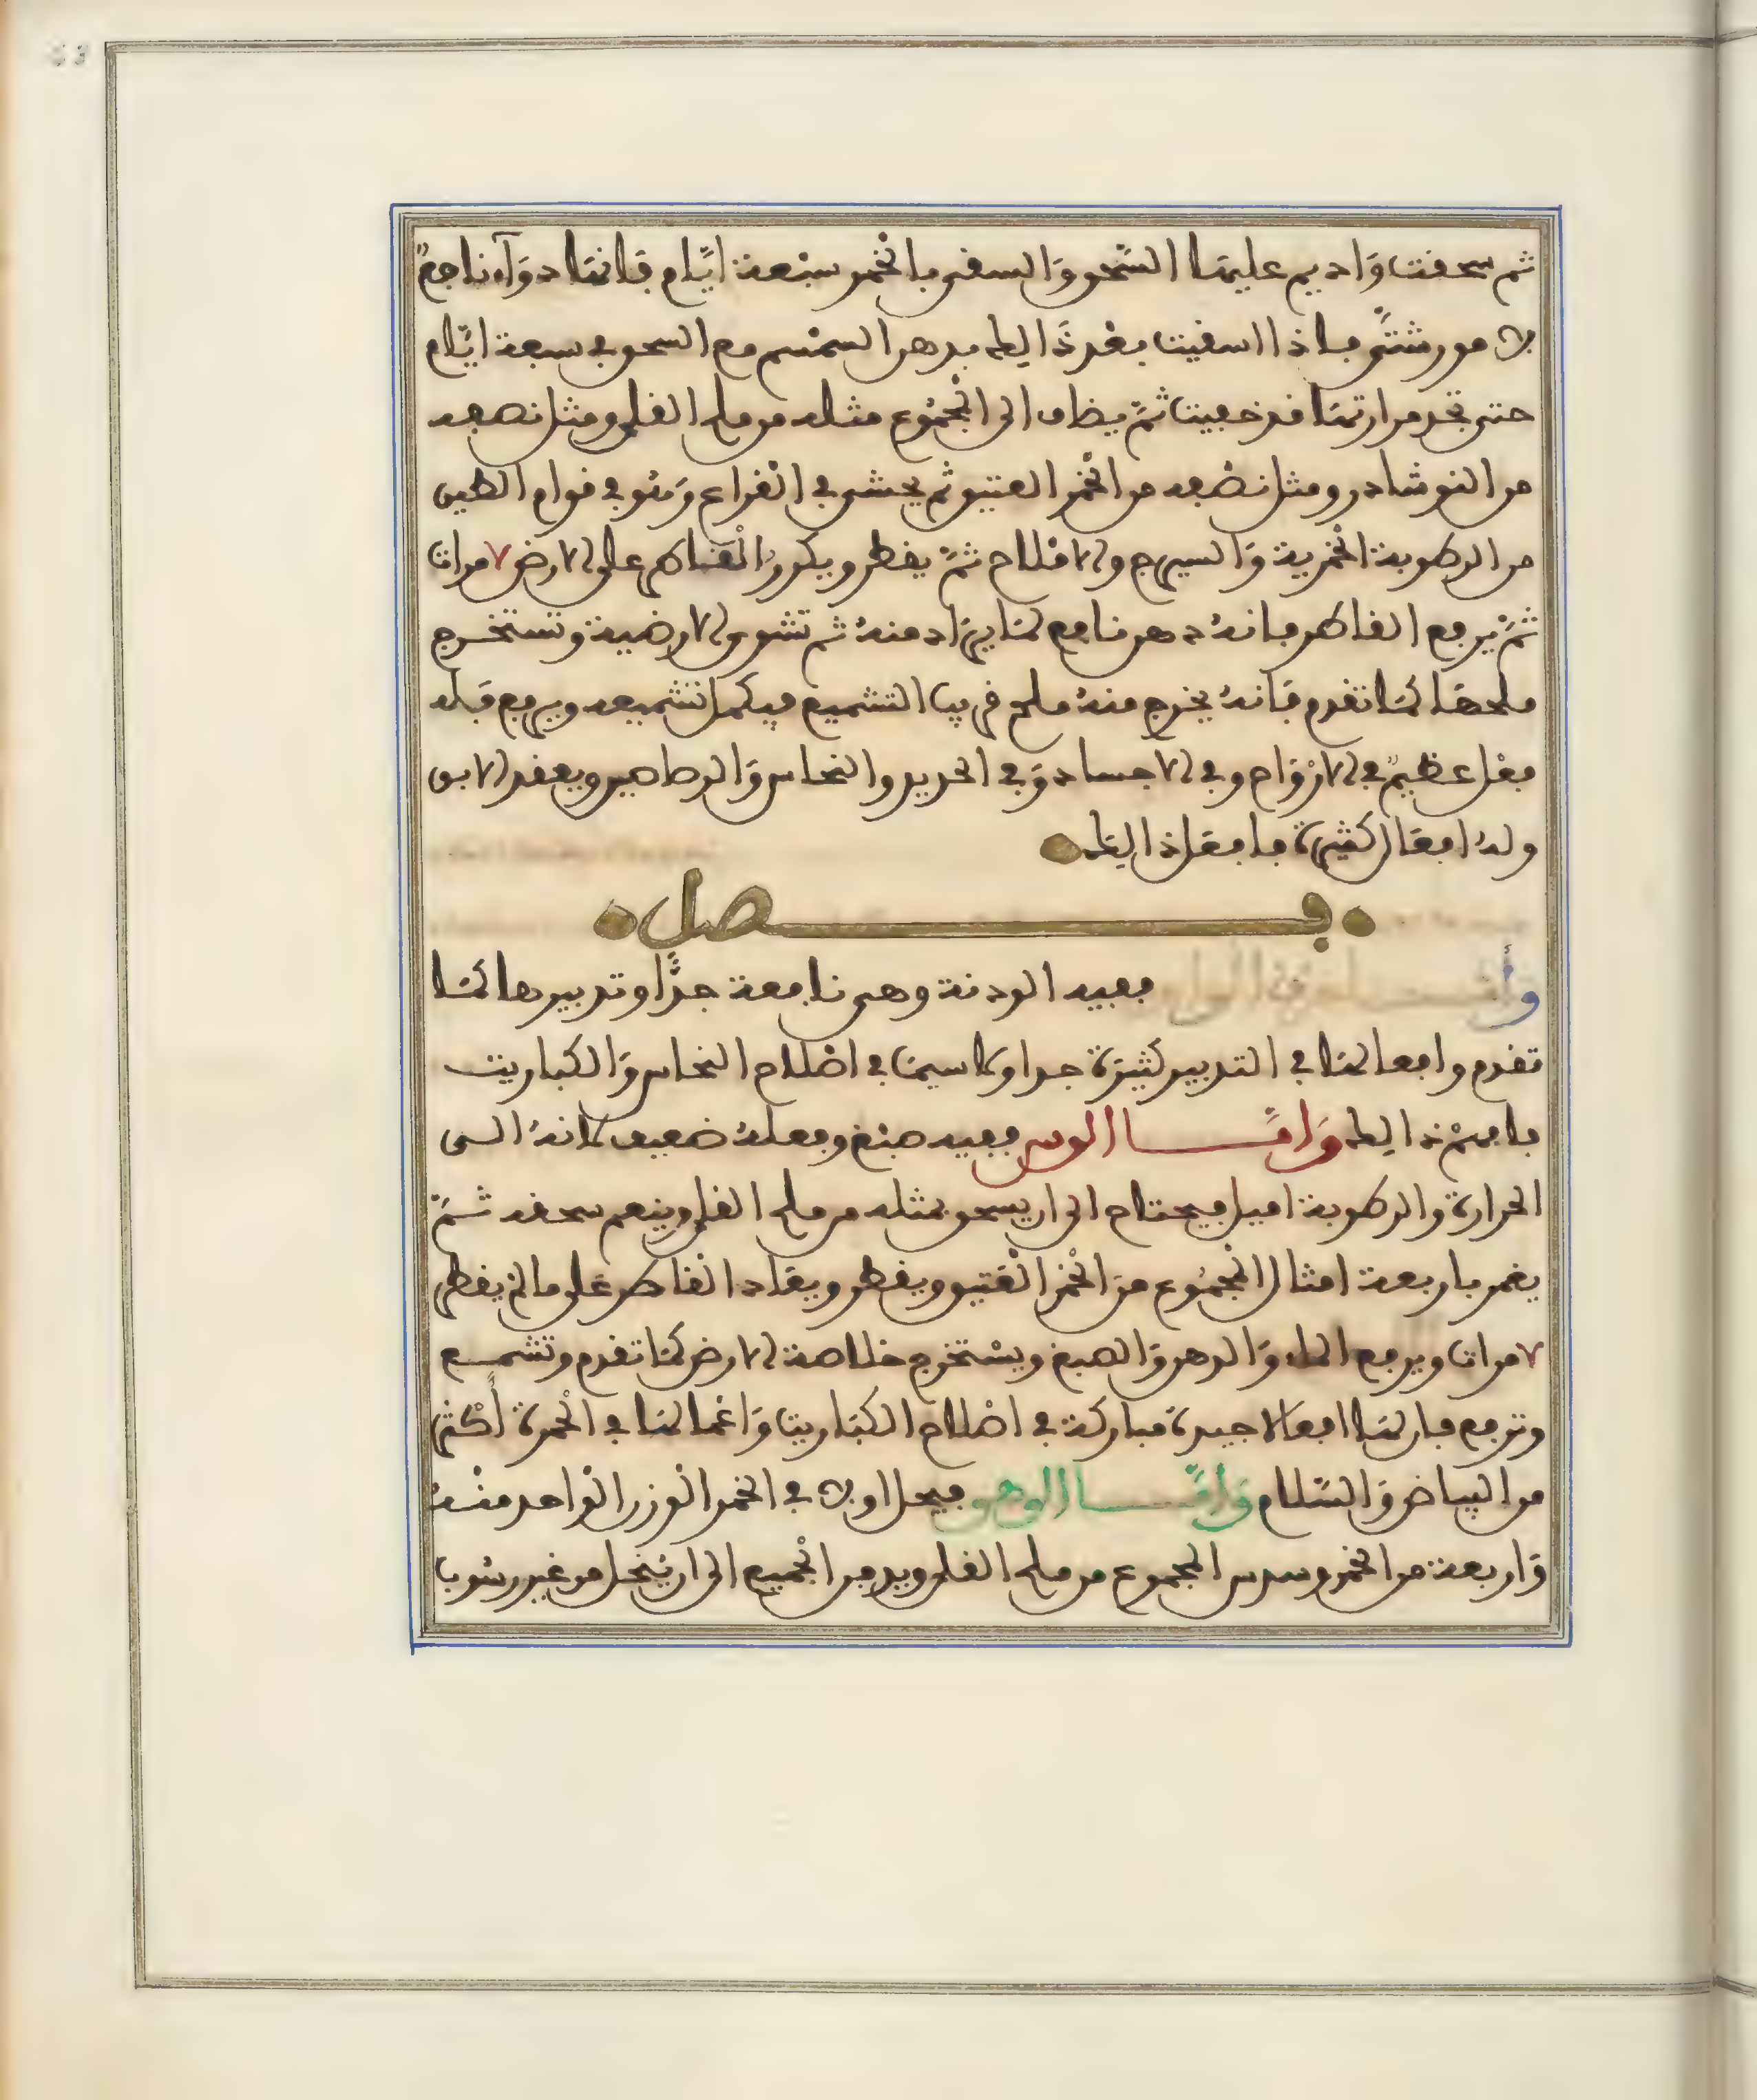 ثم سحقت وَاديم عليهَا السَّحق وَالسقى بالخمر سبْعة ايَّام فانهَا دوَآء ناجعٌ
من رشَتىً فاذا اسقيت بعْد ذَالك بدهن السمْسم مع السحق في سبعة ايَّام
حتى تجد مرارتهَا قد خفيت ثمّ يضاف الى المجْمُوع مثله من ملح القلى ومثل نصفه
من النوشادر ومثل نصْفه من الخمْر العتيق ثم يحشى في القرْع وَهُو في قوام الطين
من الرطوبة الخمْرية وَالسيرج والامْلاح ثمّ يقطر ويكررُ القاطر على الارض ٧ مرات
ثمّ يرفع القاطر فانهُ دهن نافع لمَا يرَاد منهُ ثم تشوى الارضية وتستخرج
ملحهَا كمَا تقدم فَانهُ يخرج منهُ ملح قريب التشميع فيكمل تشميعه ويرفع فَله
فعْل عظيمٌ في الارْوَاح وفي الاجساد وَفي الحديد والنحاس وَالرصاصين ويعقد الابق
ولهُ افعَال كثيرَة فافعَل ذالِك
فصل
وأمَّا ففيه الودنة وهى نافعة جدًّا وتدبيرها كمَا
تقدم وافعالهَا في التدبير كثيرَة جدا ولاسيمَا في اصْلاح النحاس وَالكباريت
فافهمْ ذالِك وَامَّا الوس ففيه صبْغ وفعلهُ ضعيف لانهُ الى
الحرارة والرطوبة اميل فيحتاج الى ان يسحق بمثله من ملح القلى وينعم سحقه ثمّ
يغمر باربعة امثال المجْمُوع منَ الخمْر الْعَتيق ويقطر ويعَاد القاطر عَلى ما لم يقطر
٧ مرات ويرفع الماء وَالدهن وَالصبغ ويسْتخرج خلاصة الارض كمَا تقدم وتشمع
وترفع فان لهَا افعَالا جيدة مباركة في اصْلاح الكبَاريت وَاعْمالهَا في الحُمرة أكثر
من البيَاض وَالسّلام وَامَّا الوهو فيحل اولا في الخمر الوزن الوَاحد منْهُ
وَاربعة من الخمْر وسدس المجموع من ملح القلى ويدفن الجميع الى ان ينحل من غير رسُوب